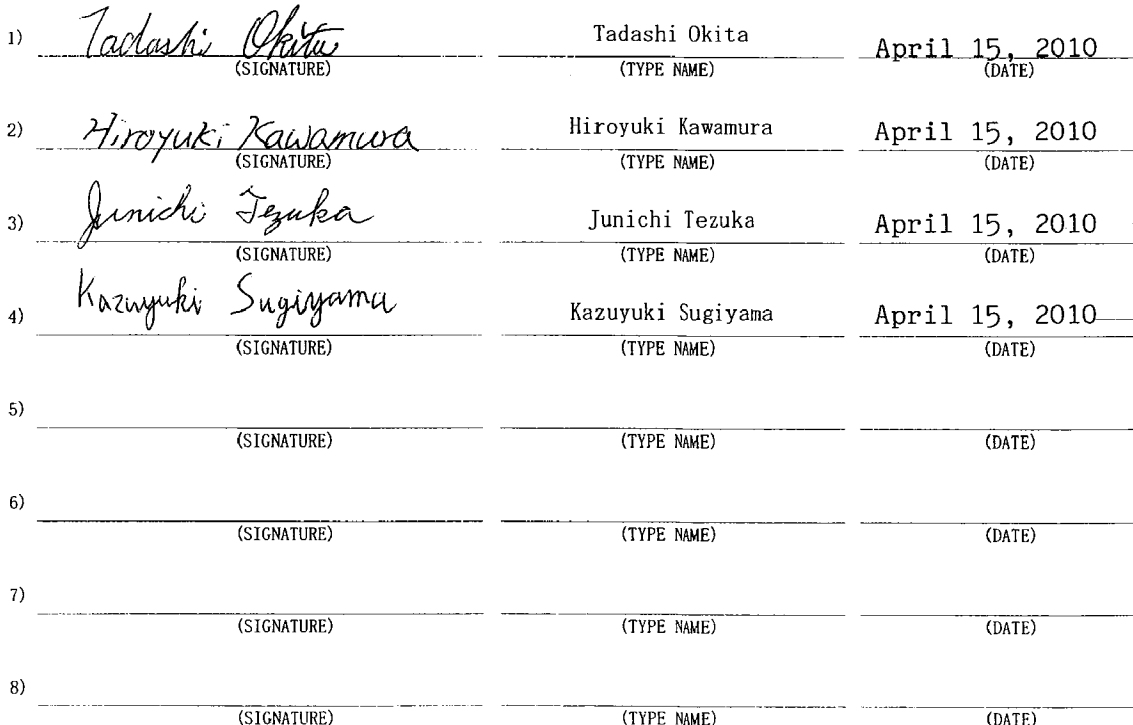 1) Tadashi Okita Tadashi Okita April 15, 2010
(SIGNATURE) (TYPE NAME) (DATE)
2) Hiroyuki Kawamura Hiroyuki Kawamura April 15, 2010
(SIGNATURE) (TYPE NAME) (DATE)
3) Junichi Tezuka Junichi Tezuka April 15, 2010
(SIGNATURE) (TYPE NAME) (DATE)
4) Kazuyuki Sugiyama Kazuyuki Sugiyama April 15, 2010
(SIGNATURE) (TYPE NAME) (DATE)
5)
(SIGNATURE) (TYPE NAME) (DATE)
6)
(SIGNATURE) (TYPE NAME) (DATE)
7)
(SIGNATURE) (TYPE NAME) (DATE)
8)
(SIGNATURE) (TYPE NAME) (DATE)